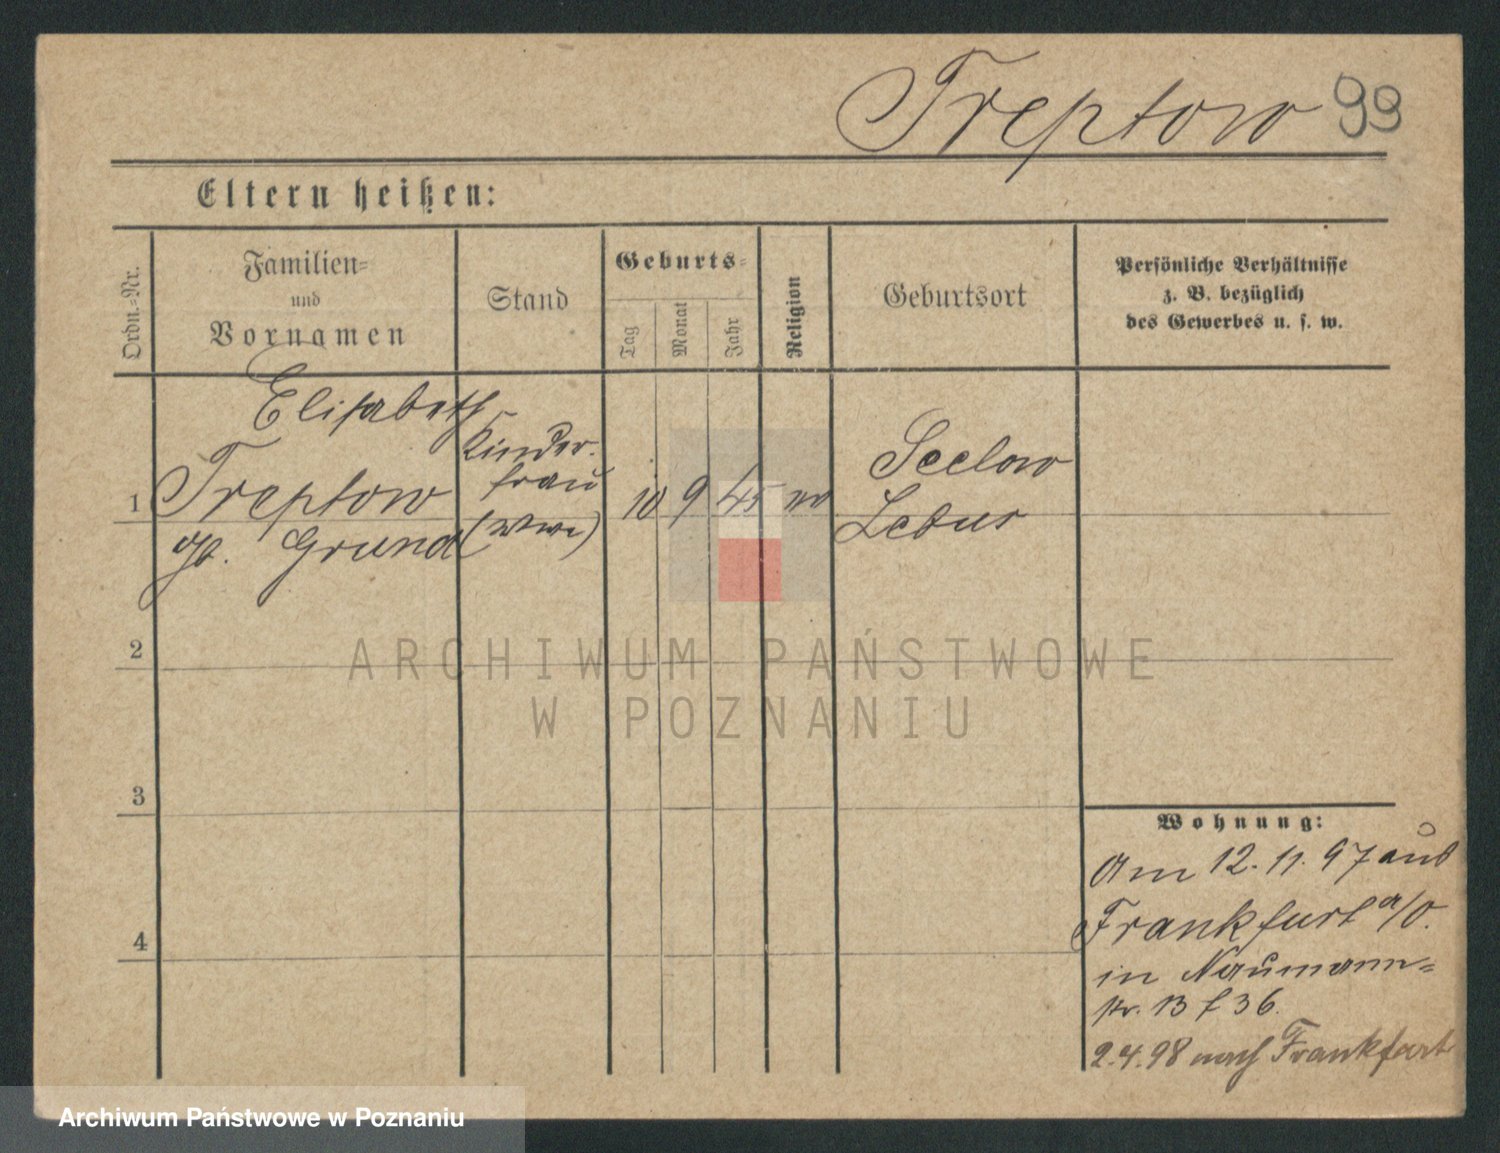 Treptow 99
Eltern heißen:
Ordn.-Nr.
Familien-
und
Vornamen
Stand
Geburts-
Tag
Monat
Jahr
Religion
Geburtsort
Persönliche Verhältnisse
z. B. bezüglich
des Gewerbes u. s. w.
1
Elisabeth
Treptow
gb. Grund
Kinder-
frau
(Wwe)
10 9 45 ev
Seelow
Lebus
2
3
4
Wohnung:
Am 12.11.97 aus
Frankfurt a/O.
in Naumann-
str. 13
36.
2.4.98 nach Frankfurt
ARCHIWUM PAŃSTWOWE
W POZNANIU
Archiwum Państwowe w Poznaniu